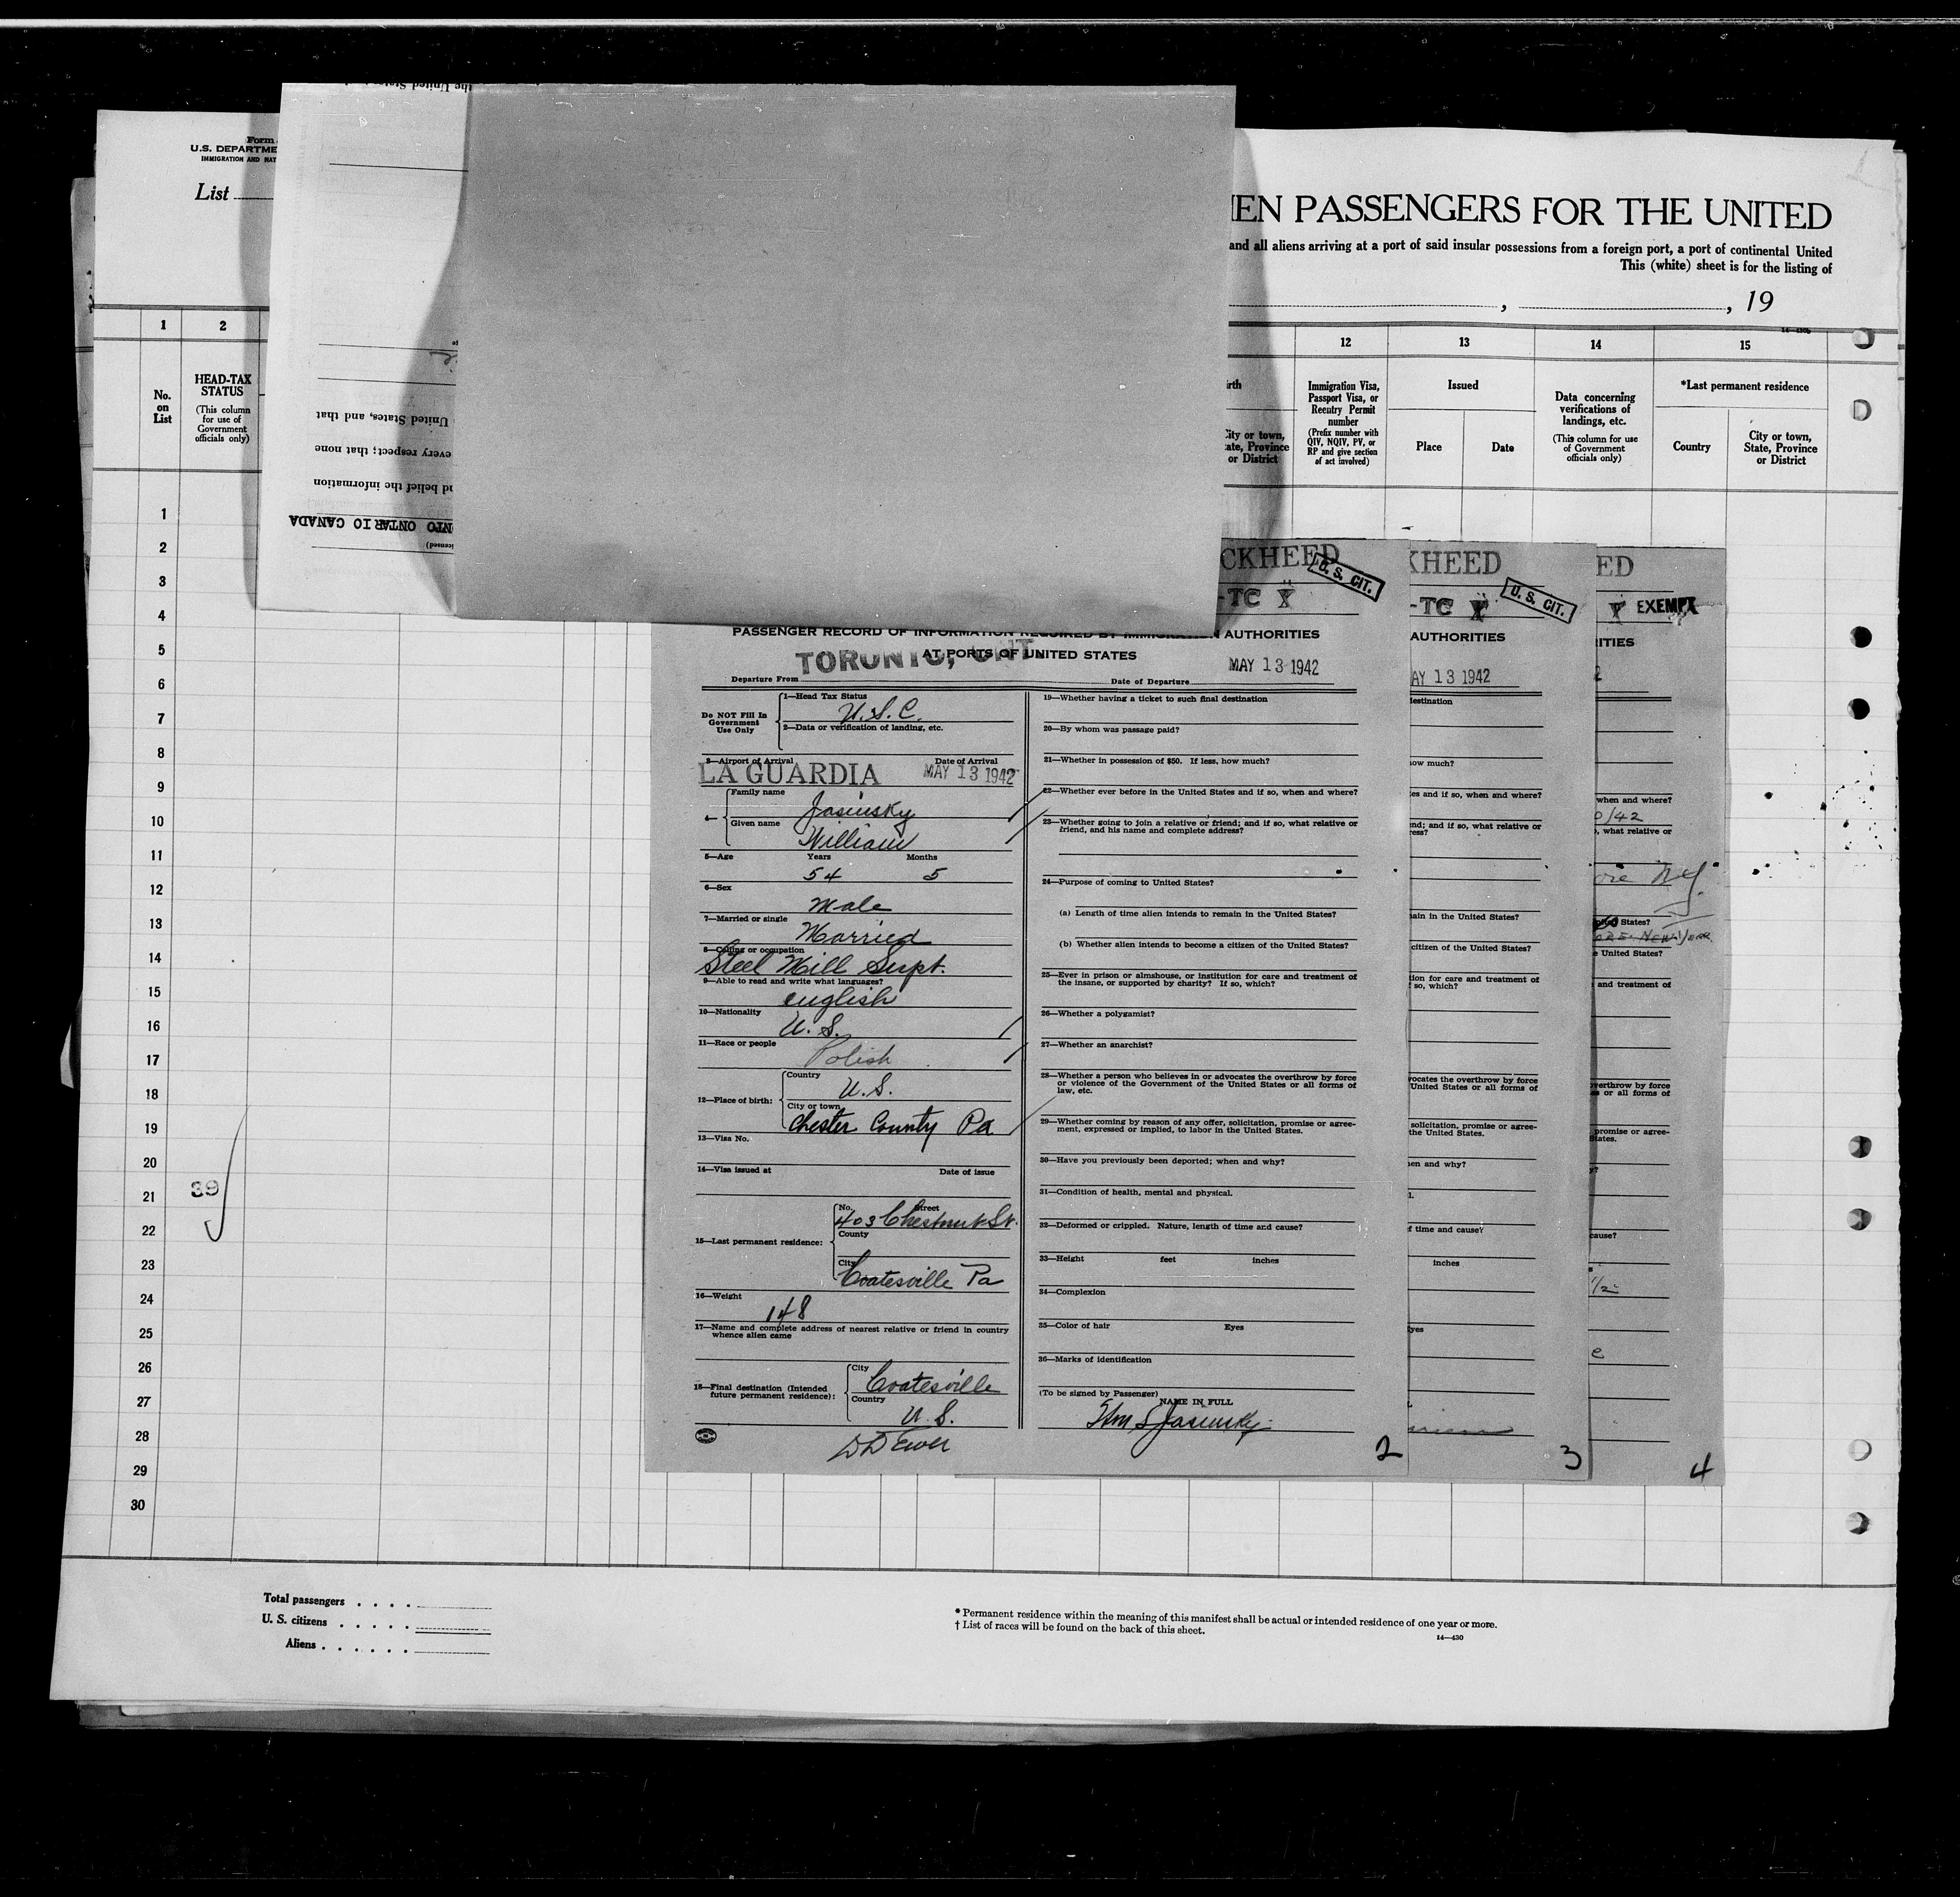 Form
U.S. DEPARTME
IMMIGRATION AND NAT
List
the United States
United States, and that
every respect; that none
nd belief the information
NTO ONTARIO CANADA
IEN PASSENGERS FOR THE UNITED
and all aliens arriving at a port of said insular possessions from a foreign port, a port of continental United
This (white) sheet is for the listing of
, , 19
1 2 12 13 14 15
No.
on
List
HEAD-TAX
STATUS
(This column
for use of
Government
officials only)
irth
City or town,
ate, Province
or District
Immigration Visa,
Passport Visa, or
Reentry Permit
number
(Prefix number with
QIV, NQIV, PV, or
RP and give section
of act involved)
Issued
Place
Date
Data concerning
verifications of
landings, etc.
(This column for use
of Government
officials only)
*Last permanent residence
Country
City or town,
State, Province
or District
1
2
3
4
5
6
7
8
9
10
11
12
13
14
15
16
17
18
19
20
21
22
23
24
25
26
27
28
29
30
39
CKHEED
U. S. CIT.
-TC X
PASSENGER RECORD OF INFORMATION REQUIRED BY IMMIGRATION AUTHORITIES
AT PORTS OF UNITED STATES
TORONTO, ONT.
MAY 13 1942
Departure From
Date of Departure
Do NOT Fill In
Government
Use Only
1—Head Tax Status
U.S.C.
2—Data or verification of landing, etc.
3—Airport of Arrival
Date of Arrival
LA GUARDIA
MAY 13 1942
4—
Family name
Jasinsky
Given name
William
5—Age Years Months
54 5
6—Sex
Male
7—Married or single
Married
8—Calling or occupation
Steel Mill Supt.
9—Able to read and write what languages?
english
10—Nationality
U.S.
11—Race or people
Polish
12—Place of birth:
Country
U.S.
City or town
Chester County Pa
13—Visa No.
14—Visa issued at Date of issue
15—Last permanent residence:
No. Street
403 Chestnut St.
County
City
Coatesville Pa
16—Weight
148
17—Name and complete address of nearest relative or friend in country
whence alien came
18—Final destination (Intended
future permanent residence):
City
Coatesville
Country
U.S.
19—Whether having a ticket to such final destination
20—By whom was passage paid?
21—Whether in possession of $50. If less, how much?
22—Whether ever before in the United States and if so, when and where?
23—Whether going to join a relative or friend; and if so, what relative or
friend, and his name and complete address?
24—Purpose of coming to United States?
(a) Length of time alien intends to remain in the United States?
(b) Whether alien intends to become a citizen of the United States?
25—Ever in prison or almshouse, or institution for care and treatment of
the insane, or supported by charity? If so, which?
26—Whether a polygamist?
27—Whether an anarchist?
28—Whether a person who believes in or advocates the overthrow by force
or violence of the Government of the United States or all forms of
law, etc.
29—Whether coming by reason of any offer, solicitation, promise or agree-
ment, expressed or implied, to labor in the United States.
30—Have you previously been deported; when and why?
31—Condition of health, mental and physical.
32—Deformed or crippled. Nature, length of time and cause?
33—Height feet inches
34—Complexion
35—Color of hair Eyes
36—Marks of identification
(To be signed by Passenger)
NAME IN FULL
Wm S Jasinsky
2
KHEED
U. S. CIT.
-TC
AUTHORITIES
AY 13 1942
destination
ow much?
es and if so, when and where?
nd; and if so, what relative or
ress?
ain in the United States?
citizen of the United States?
tion for care and treatment of
so, which?
vocates the overthrow by force
United States or all forms of
solicitation, promise or agree-
the United States.
en and why?
l.
f time and cause?
inches
Eyes
3
ED
EXEMPT
RITIES
when and where?
0/42
, what relative or
States?
e United States?
and treatment of
overthrow by force
s or all forms of
promise or agree-
States.
y?
cause?
1/2
e
4
Total passengers . . . .
U. S. citizens . . . . .
Aliens . . . . . .
* Permanent residence within the meaning of this manifest shall be actual or intended residence of one year or more.
† List of races will be found on the back of this sheet.
14—430